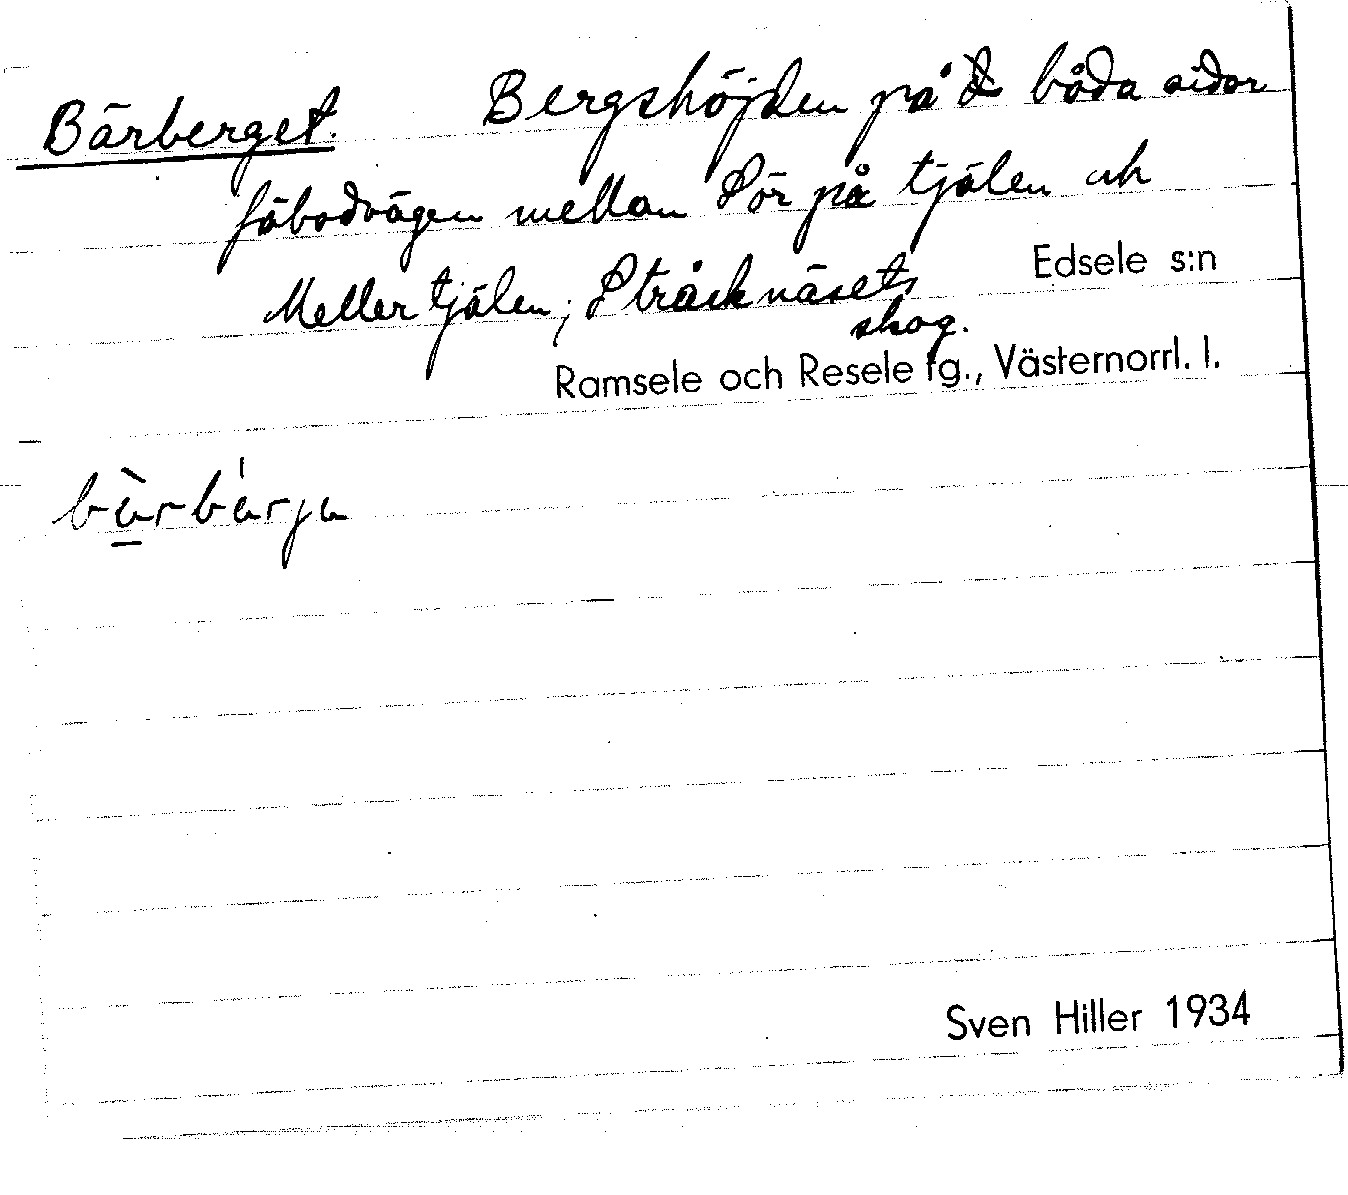 Bärberget. Bergshöjden på båda sidor
fäbodvägen mellan Sör på tjälen och
Meller tjälen; Stråcknäsets
skog.
Edsele s:n
Ramsele och Resele tg., Västernorrl. l.
bàrbárja
Sven Hiller 1934